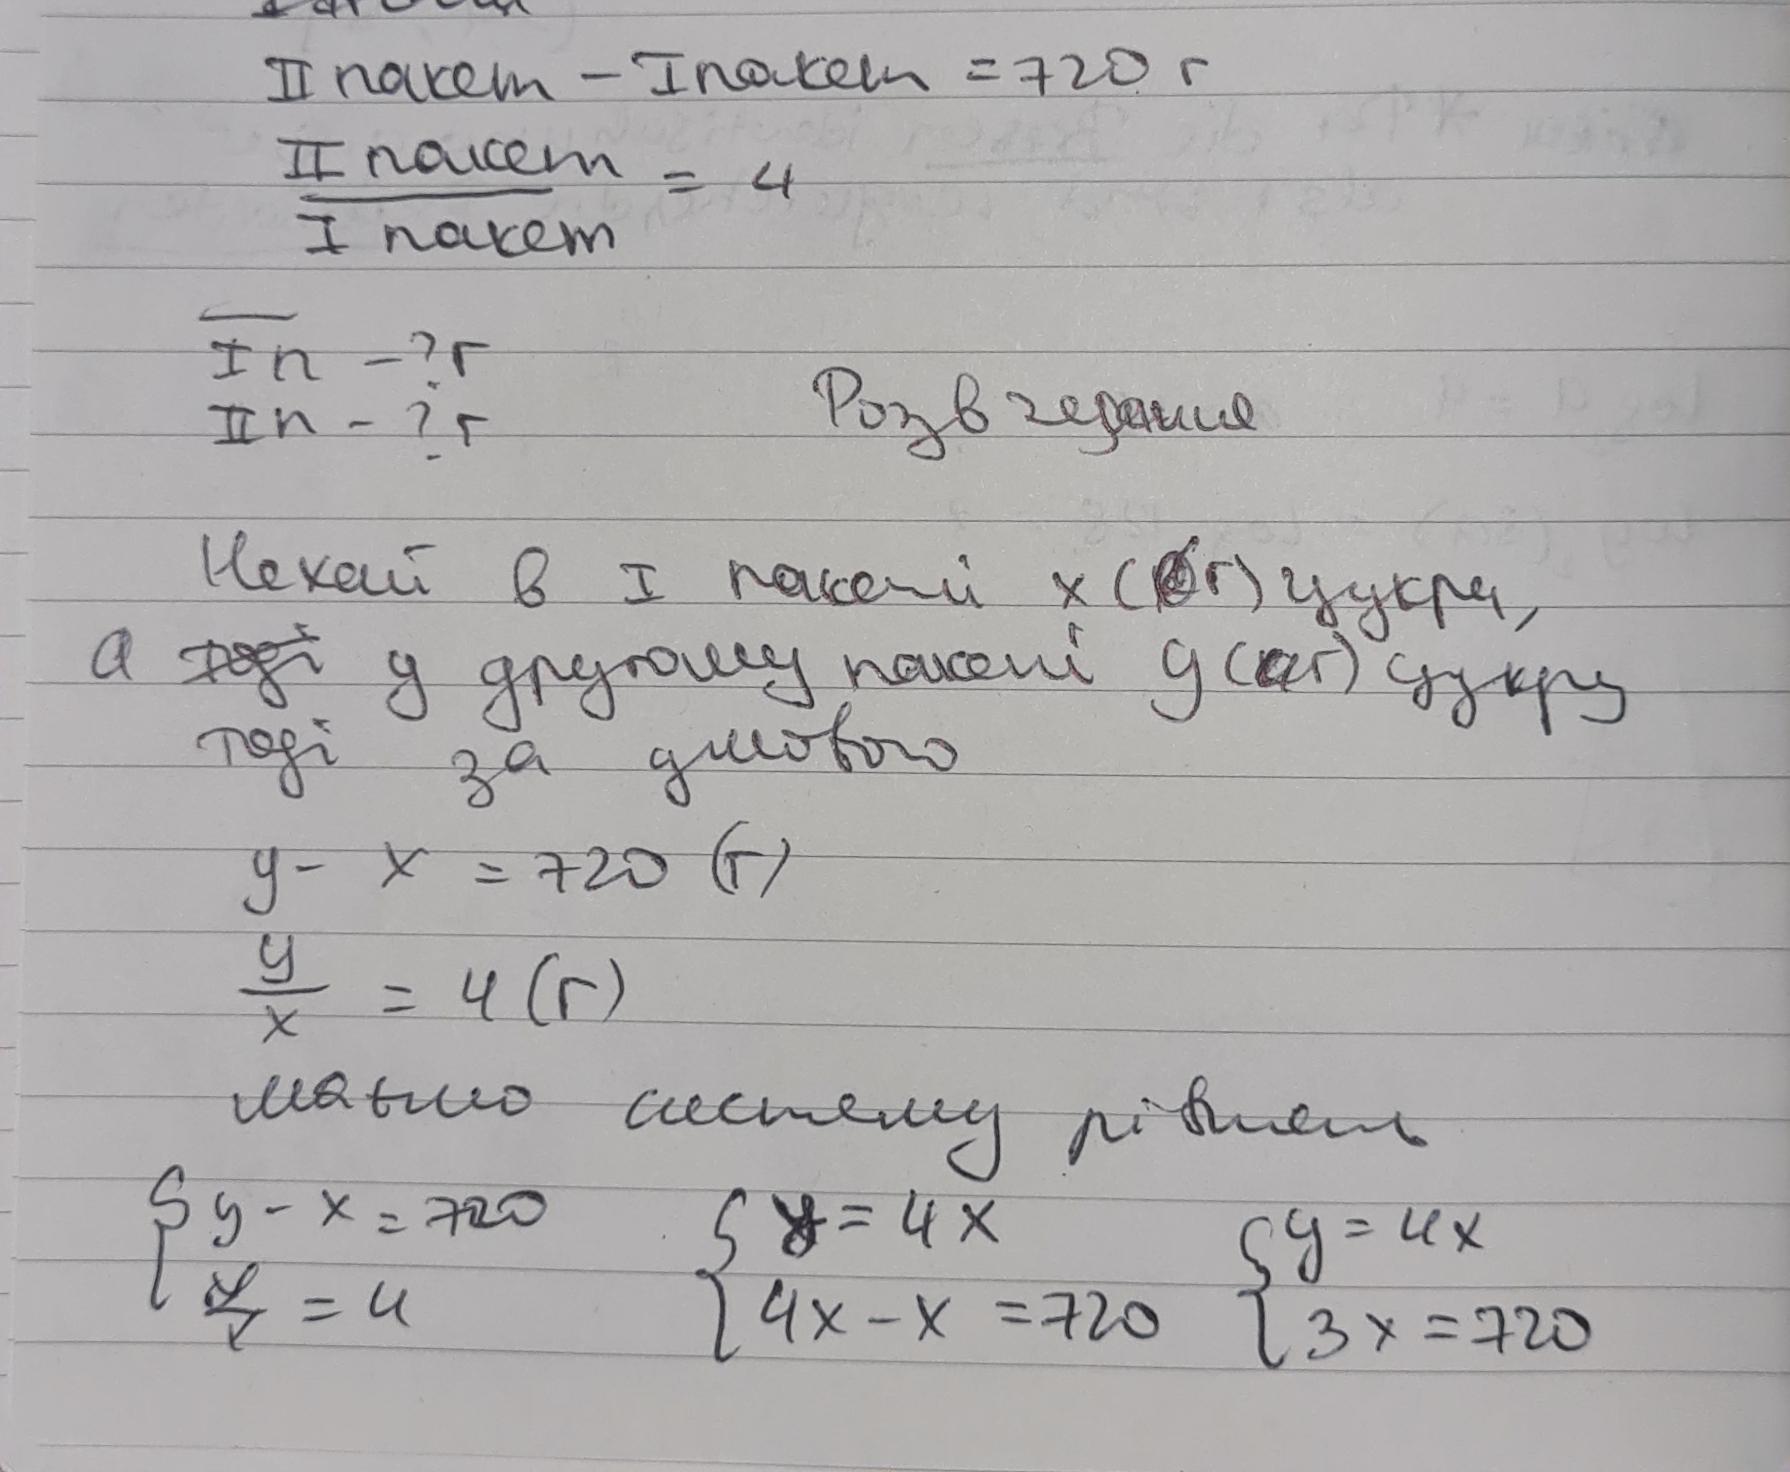 II пакет - I пакет = 720 г
II пакет / I пакет = 4
I п - ? г
II п - ? г
Розвязання
Нехай в I пакеті x (г) цукру,
а тоді у другому пакеті y (г) цукру
тоді за умовою
y - x = 720 (г)
y/x = 4 (г)
маємо систему рівнянь
{ y - x = 720 { y = 4x { y = 4x
y/x = 4 4x - x = 720 3x = 720